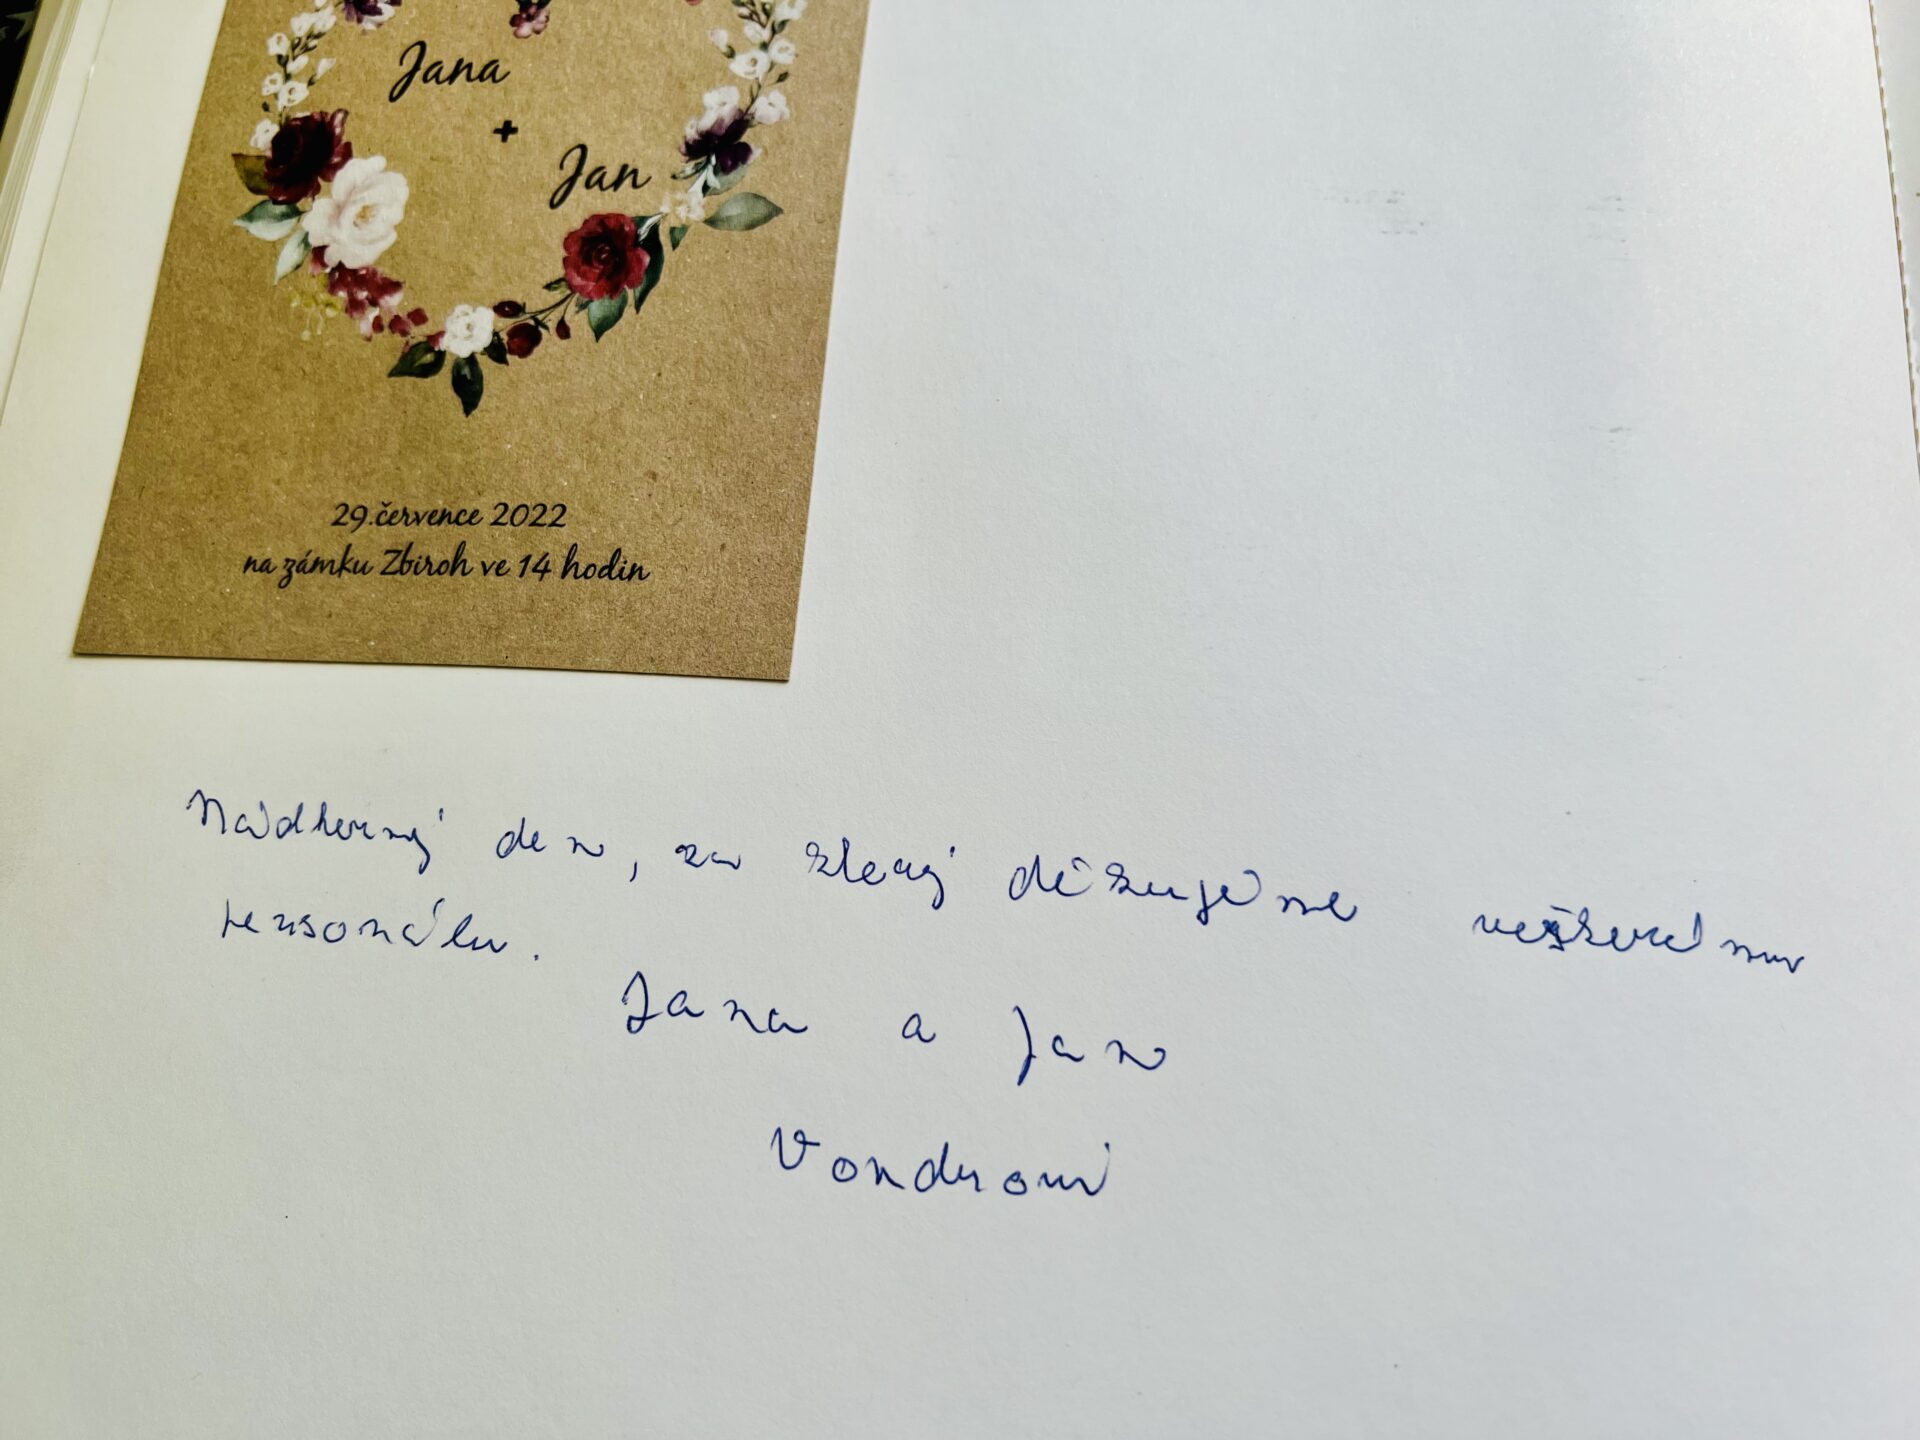 Jana
+
Jan
29.července 2022
na zámku Zbiroh ve 14 hodin
Nádherný den, za který děkujeme veškerému
personálu.
Jana a Jan
Vondrovi